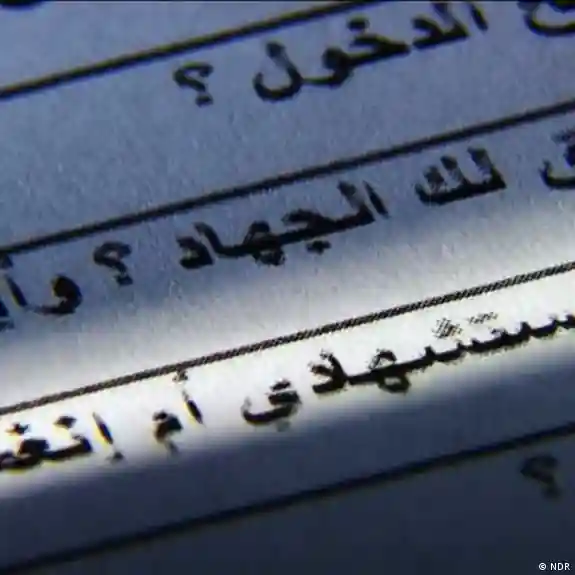 الدخول ؟
لك الجهاد ؟ وأ
ستشهادي أم إنغ
؟
© NDR